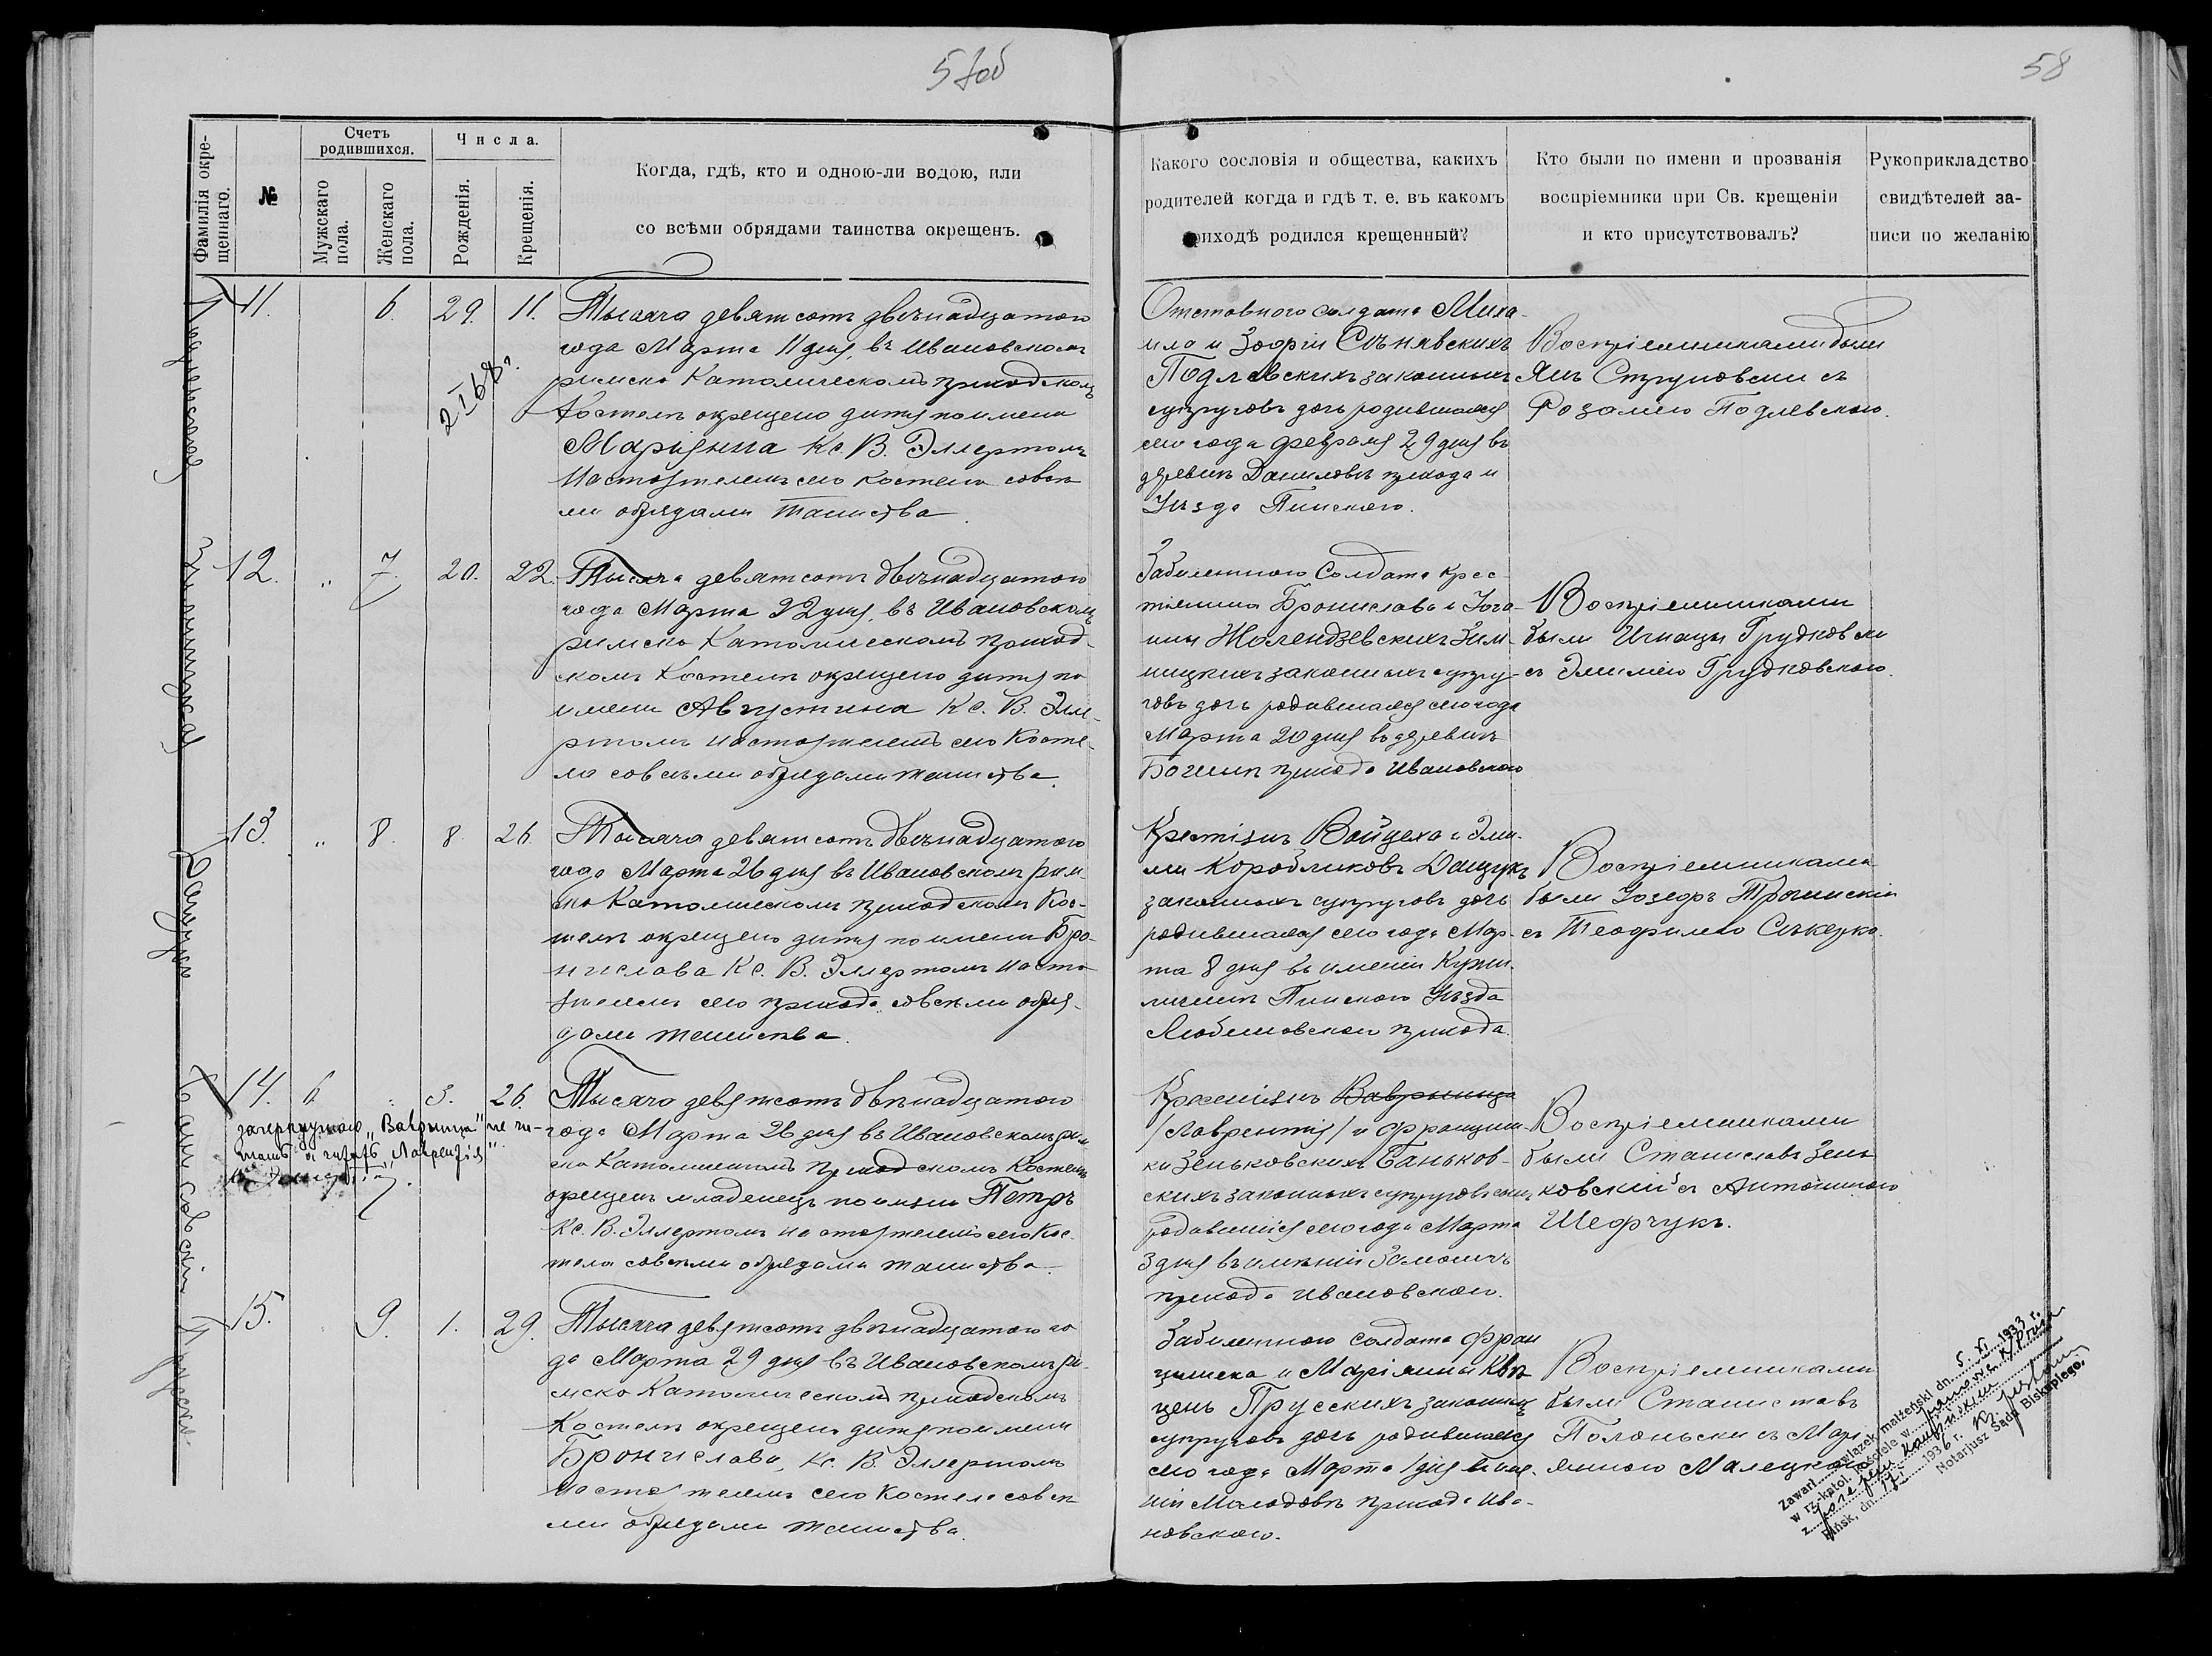 57об
58
Фамилія окре-
щеннаго.
№
Счетъ
родившихся.
Мужскаго
пола.
Женскаго
пола.
Числа.
Рожденія.
Крещенія.
Когда, гдѣ, кто и одною-ли водою, или
со всѣми обрядами таинства окрещенъ.
Какого сословія и общества, какихъ
родителей когда и гдѣ т. е. въ какомъ
приходѣ родился крещенный?
Кто были по имени и прозванія
воспріемники при Св. крещеніи
и кто присутствовалъ?
Рукоприкладство
свидѣтелей за-
писи по желанію
Подлевская
11.
6.
29.
11.
Тысяча девятсотъ двѣнадцатого
года Марта 11 дня, въ Ивановскомъ
римско Католическомъ приходскомъ
Костелѣ окрещено дитя по имени
Маріянна Кс. В. Эллертомъ
Настоятелемъ сего Костела со всѣ
ми обрядами таинства.
Отставного солдата Миха-
ила и Зофіи Сѣнявскихъ
Подлевскихъ законныхъ
супруговъ дочь родившаяся
сего года февраля 29 дня въ
деревнѣ Даниловѣ прихода и
Уѣзда Пинского.
Воспріемниками были
Янъ Струповски съ
Розаліею Подлевскою.
Зимницкая
12.
"
7.
20.
22.
Тысяча девятсотъ двѣнадцатого
года Марта 22 дня, въ Ивановскомъ
римско Католическомъ приход-
скомъ Костелѣ окрещено дитя по
имени Августина Кс. В. Элле-
ртомъ настоятелемъ сего Косте-
ла со всѣми обрядами таинства.
Забилетного Солдата крес-
тянина Бронислава и Іоа-
нны Жолендзевскихъ Зим-
ницкихъ законныхъ супру-
говъ дочь родившаяся сего года
Марта 20 дня въ деревнѣ
прихода Ивановского
Воспріемниками
были Игнацы Грудковски
съ Эмиліею Грудковскою.
Дащукъ
13.
"
8.
8.
26.
Тысяча девятсотъ двѣнадцатого
года Марта 26 дня въ Ивановскомъ рим-
ско Католическомъ приходскомъ Кос-
телѣ окрещено дитя по имени Бро-
нислава Кс. В. Эллертомъ насто-
ятелемъ сего прихода со всѣми обря-
дами таинства.
Крестіянъ Войцеха и Эми-
ліи Коробликовъ Дащукъ
законныхъ супруговъ дочь
родившаяся сего года Мар-
та 8 дня въ имѣніи
Пинского Уѣзда
Любешовского прихода.
Воспріемниками
были Іозефъ
съ Теофилею
Баньковскій
14.
6
3.
26.
зачеркнутого „Вавринца" не чи-
тать а читать „Лаврентія".
Тысяча девятсотъ двѣнадцатого
года Марта 26 дня въ Ивановскомъ рим
ско Католическомъ приходскомъ Костелѣ
окрещенъ младенецъ по имени Петръ
Кс. В. Эллертомъ настоятелемъ сего Кос-
тела со всѣми обрядами таинства.
Крестіянъ Вавринца
/Лаврентія/ и Францишки
Зеньковскихъ Баньков-
скихъ законныхъ супруговъ сынъ
родившійся сего года Марта
3 дня въ имѣніи
прихода Ивановского.
Воспріемниками
были Станиславъ Зень
ковскій съ Антониною
Шефчукъ.
Прусска.
15.
9.
1.
29.
Тысяча девятсотъ двѣнадцатого го
да Марта 29 дня въ Ивановскомъ ри-
мско Католическомъ приходскомъ
Костелѣ окрещено дитя по имени
Бронислава, Кс. В. Эллертомъ
настоятелемъ сего Костела со всѣ
ми обрядами таинства.
Забилетного солдата Фран
цишека и Маріянны Квѣ
цень Прусскихъ законныхъ
супруговъ дочь родившаяся
сего года Марта 1 дня въ имѣ-
ніи Молодовѣ прихода Ива-
новского.
Воспріемниками
были Станиславъ
Полоньски съ Марі
янною Малецкою.
Zawarł związek małżeński dn. 5.XI.1933 r.
w rz.-katol. kościele w
z
Pińsk, dn. 1936 r.
Notarjusz Sądu Biskupiego.